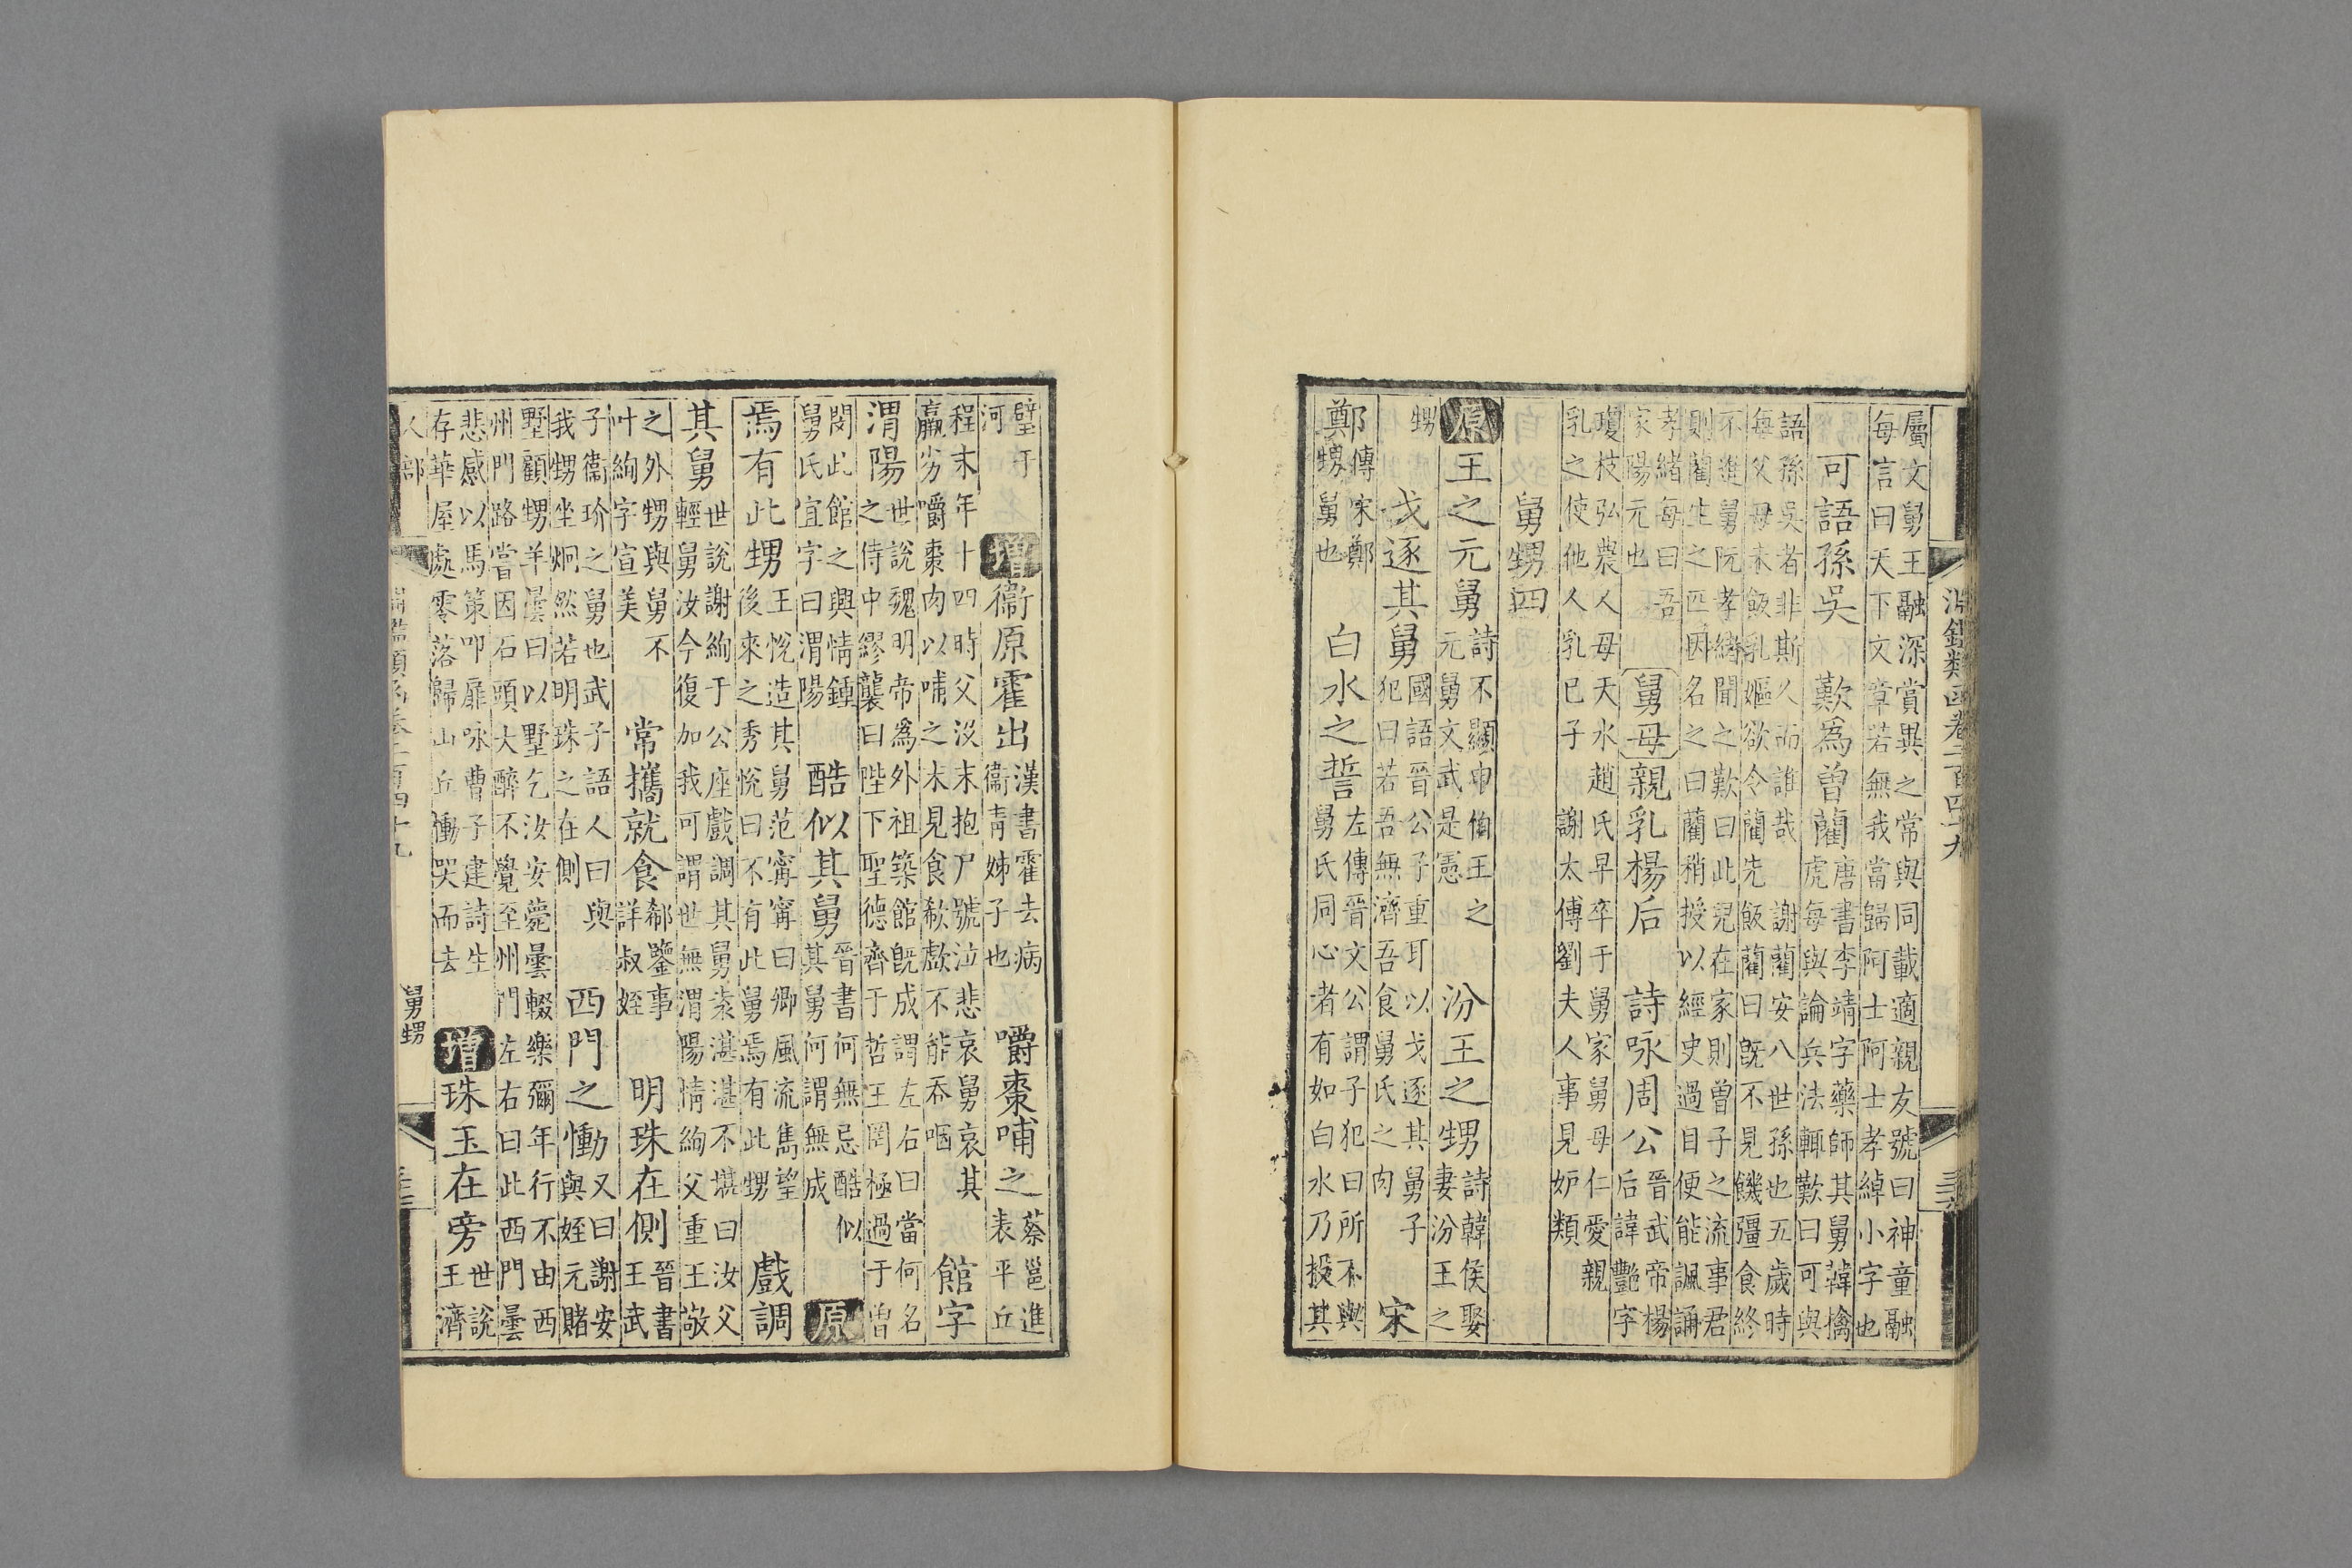 淵鑑類函卷二百四十九
屬文舅王融深賞異之常與同載適親友號曰神童融
每言曰天下文章若無我當歸阿士阿士孝綽小字也
可語孫吳 歎爲曾藺 唐書李靖字藥師其舅韓擒
虎每與論兵法輒歎曰可與
語孫吳者非斯人而誰哉 謝藺安八世孫也五歲時
每父母未飯乳嫗欲令藺先飯藺曰旣不見饑彊食終
不進舅阮孝緒聞之歎曰此兒在家則曾子之流事君
則藺生之匹因名之曰藺稍授以經史過目便能諷誦
孝緒每曰吾
家陽元也
舅母 親乳楊后 詩咏周公 晉武帝楊
后諱豔字
瓊枝弘農人母天水趙氏早卒于舅家舅母仁愛親
乳之使他人乳已子 謝太傅劉夫人事見妒類
舅甥四
原 王之元舅 詩不顯申伯王之
元舅文武是憲 汾王之甥 詩韓侯娶
妻汾王之
甥 戈逐其舅 國語晉公子重耳以戈逐其舅子
犯曰若吾無濟吾食舅氏之肉 宋
鄭甥舅 傳宋鄭
甥舅也 白水之誓 左傳晉文公謂子犯曰所不與
舅氏同心者有如白水乃投其
璧于
河 增 衞原霍出 漢書霍去病
衞青姊子也 嚼棗哺之 蔡邕進
表平丘
程末年十四時父沒末抱尸號泣悲哀舅哀其
羸劣嚼棗肉以哺之末見食歔欷不能吞咽 館字
渭陽 世說魏明帝爲外祖築館旣成謂左右曰當何名
之侍中繆襲曰陛下聖德齊于哲王罔極過于曾
閔此館之興情鍾
舅氏宜字曰渭陽 酷似其舅 晉書何無忌酷似
其舅何謂無成 原
焉有此甥 王悅造其舅范寗寗曰卿風流雋望
後來之秀悅曰不有此舅焉有此甥 戲調
其舅 世說謝絢于公座戲調其舅袁湛湛不堪曰汝父
輕舅汝今復加我可謂世無渭陽情絢父重王敬
之外甥與舅不
叶絢字宣美 常攜就食 郗鑒事
詳叔姪 明珠在側 晉書
王武
子衞玠之舅也武子語人曰與
我甥坐炯然若明珠之在側 西門之慟 又曰謝安
與姪元賭
墅顧甥羊曇曰以墅乞汝安薨曇輟樂彌年行不由西
州門路嘗因石頭大醉不覺至州門左右曰此西門曇
悲感以馬策叩扉咏曹子建詩生
存華屋處零落歸山丘慟哭而去 增 珠玉在旁 世說
王濟
人部 淵鑑類函卷二百四十九 舅甥